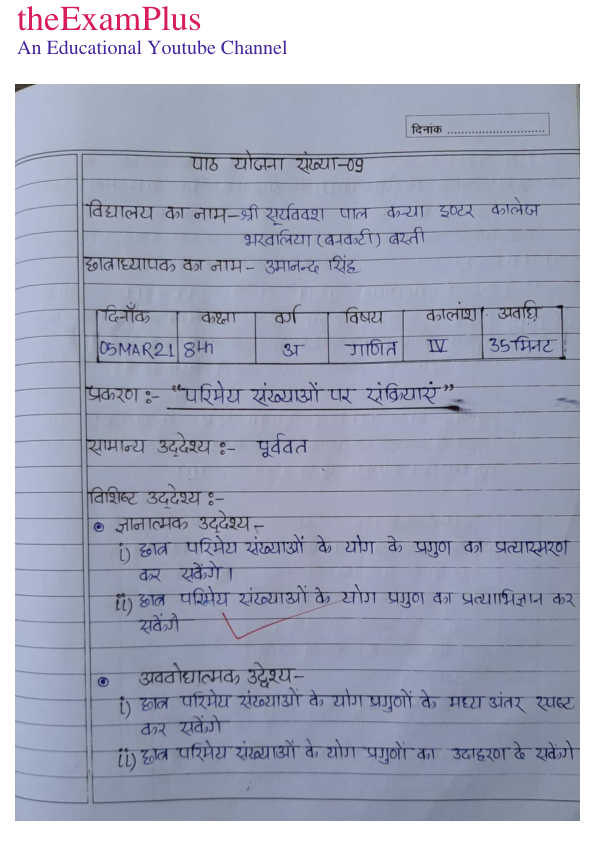 theExamPlus
An Educational Youtube Channel
दिनांक ..............................
पाठ योजना संख्या-09
विद्यालय का नाम- श्री सूर्यवक्श पाल कन्या इण्टर कालेज
भरवलिया (बनकटी) बस्ती
छात्राध्यापक का नाम- उमानन्द सिंह
दिनाँक कक्षा वर्ग विषय कालांश अवधि
05MAR21 8th अ गणित IV 35मिनट
प्रकरण :- "परिमेय संख्याओं पर संक्रियाएं"
सामान्य उद्देश्य :- पूर्ववत
विशिष्ट उद्देश्य :-
ज्ञानात्मक उद्देश्य -
i) छात्र परिमेय संख्याओं के योग के प्रगुण का प्रत्यास्मरण
कर सकेंगे।
ii) छात्र परिमेय संख्याओं के योग प्रगुण का प्रत्याभिज्ञान कर
सकेंगे
अवबोधात्मक उद्देश्य-
i) छात्र परिमेय संख्याओं के योग प्रगुणों के मध्य अंतर स्पष्ट
कर सकेंगे
ii) छात्र परिमेय संख्याओं के योग प्रगुणों का उदाहरण दे सकेंगे